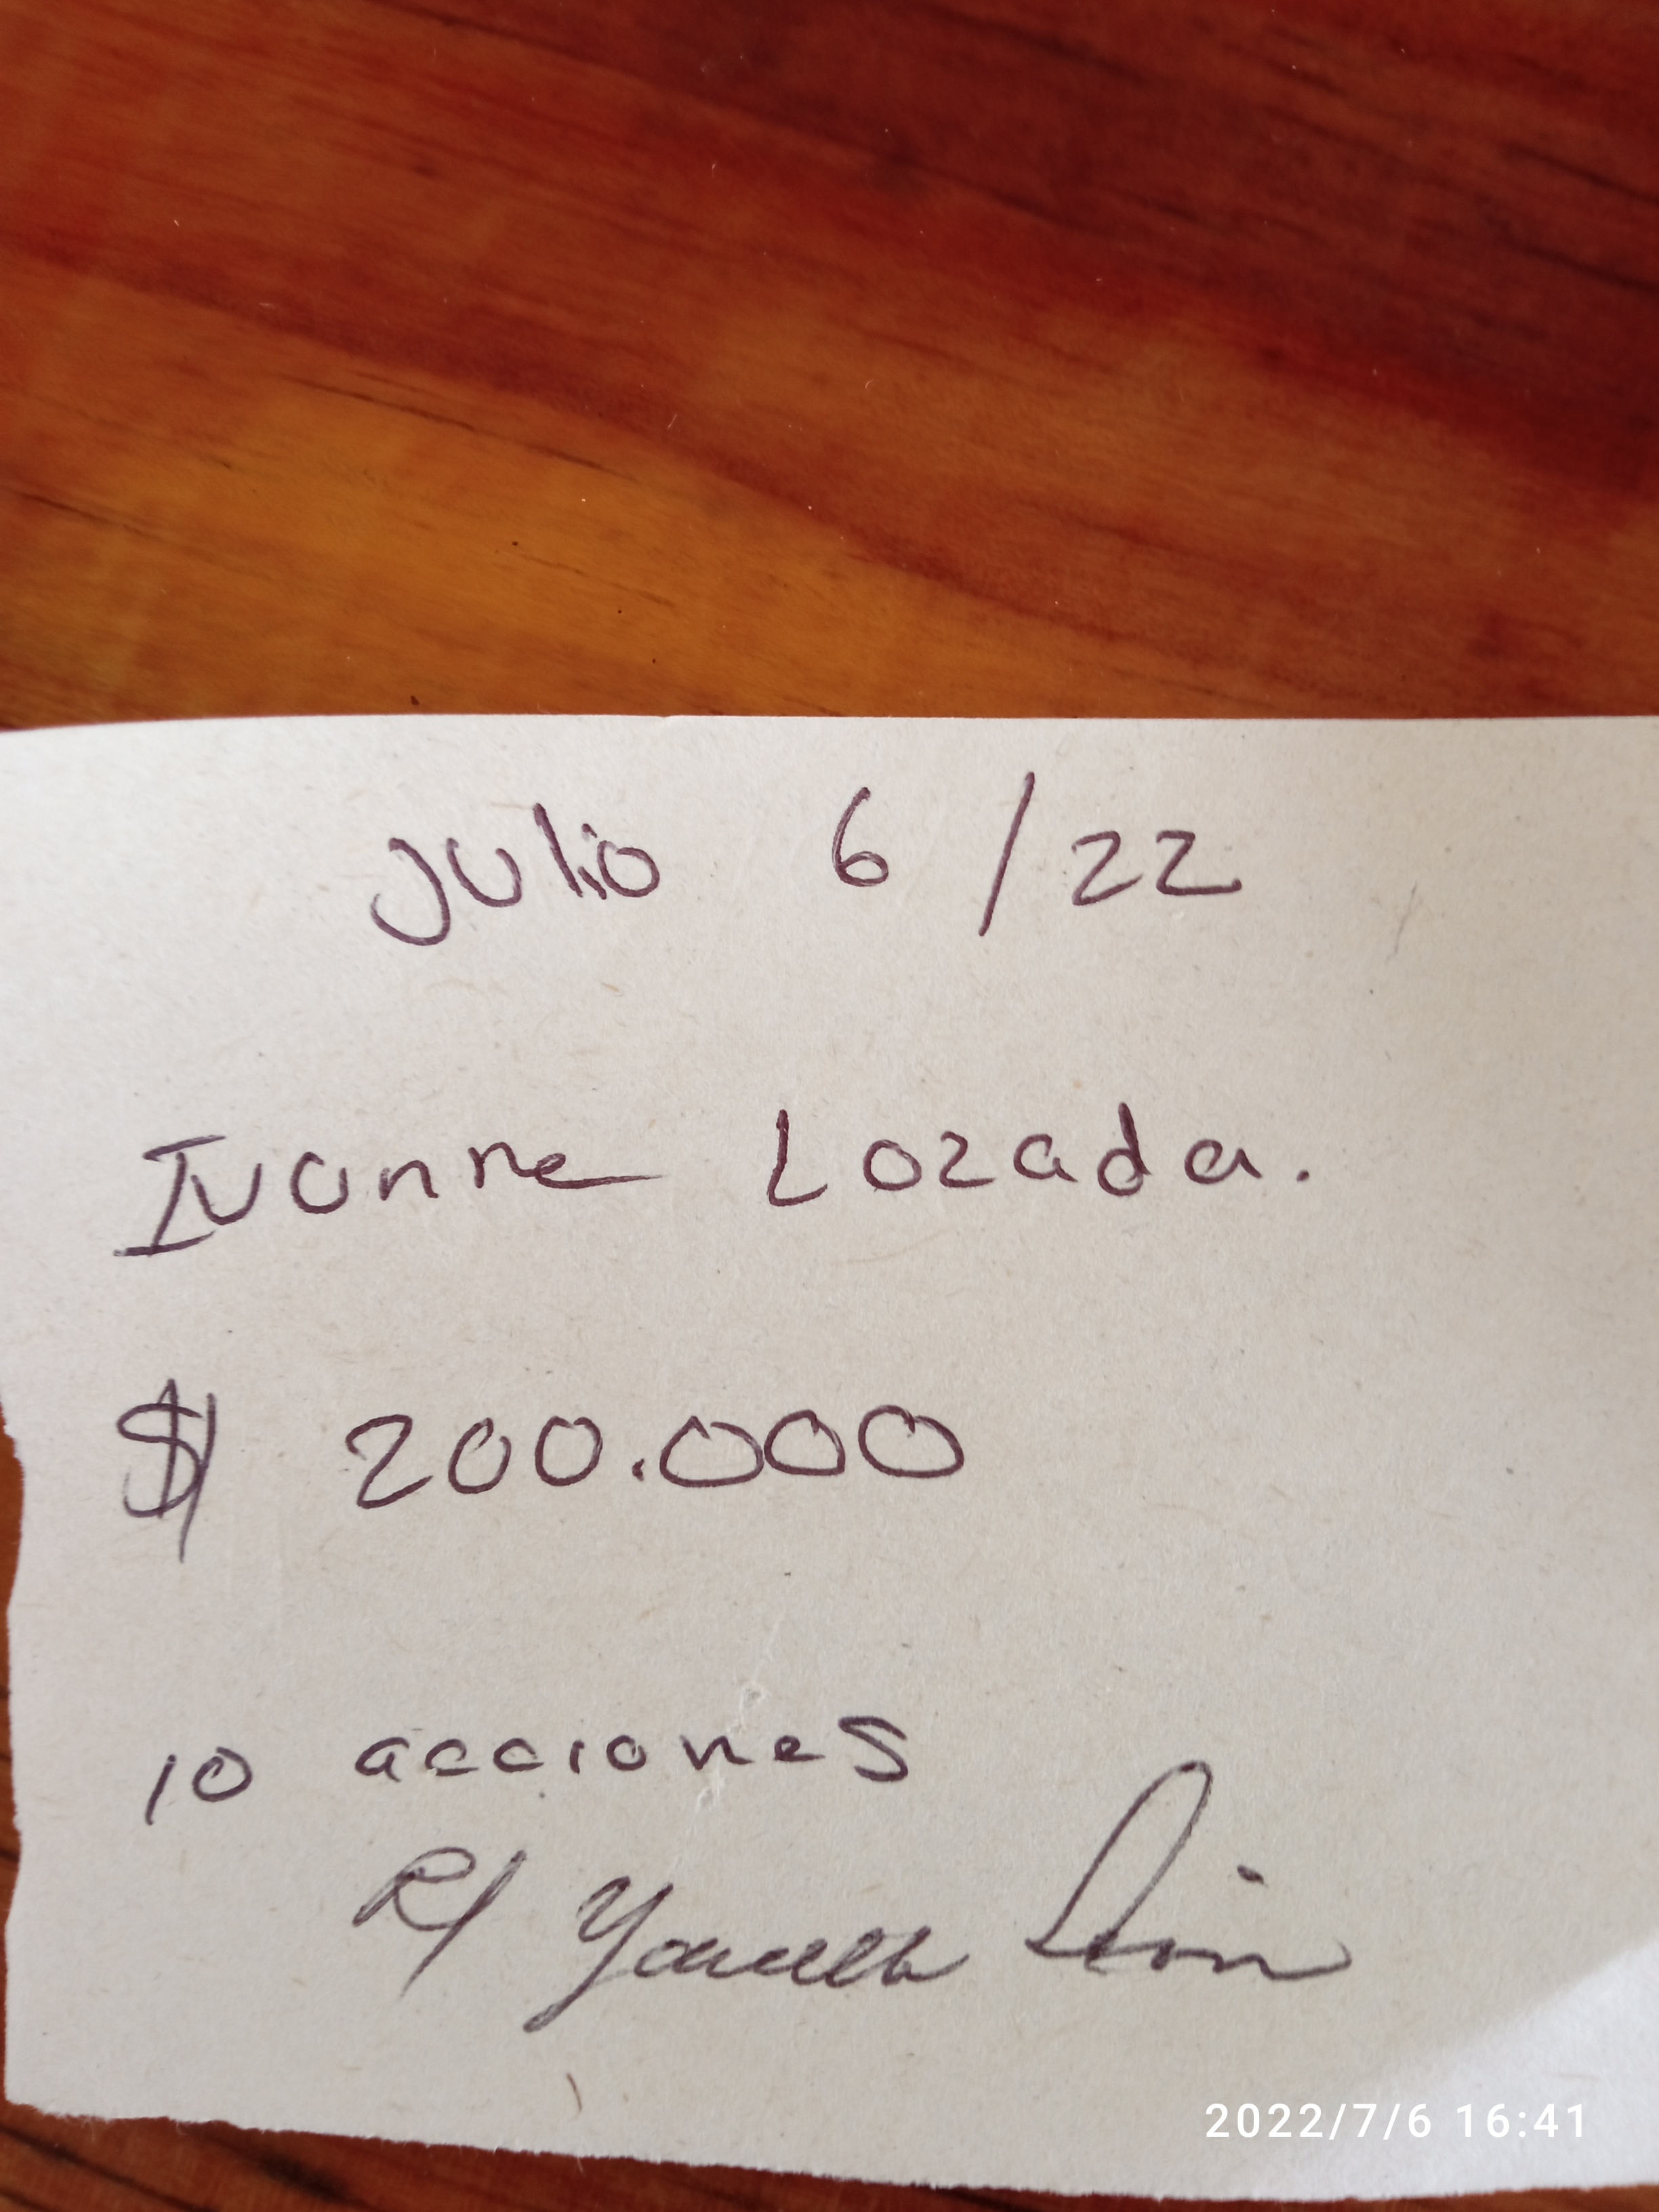 Julio 6 / 22
Ivonne Lozada.
$ 200.000
10 acciones
R/
2022/7/6 16:41